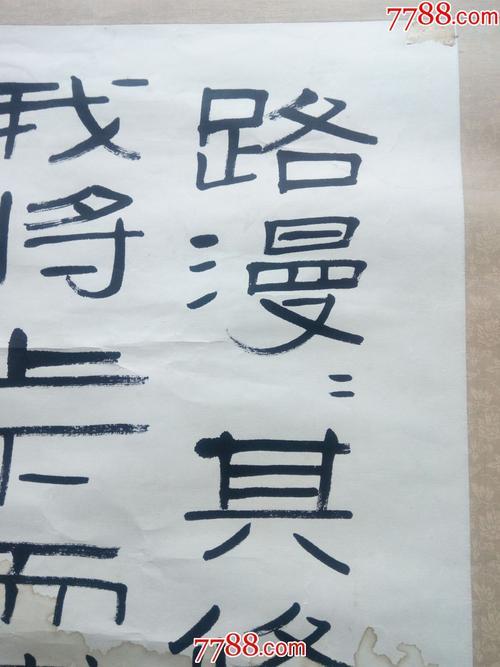 7788.com
路漫〻其修
我将上下而
7788.com